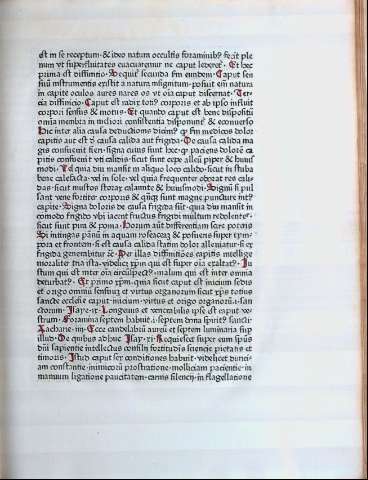 est in se receptum · & ideo natura occultis foraminib9 fecit ple
num vt superfluitates euacuarentur ne caput lederet · Et hec
prima est diffinitio · Sequit secunda fm eundem · Caput sen
suū instrumentis existit a natura insignitum · posuit eī natura
in capite oculos aures nares os vt oīa caput discernat · Ter
cia diffinicio · Caput est radix toti9 corporis et ab ipso influit
corpori sensus & motus · Et quando caput est bene dispositū
omīa membra in meliori consistentia disponunt & econuerso
Hic inter alia causa deductionis
capitis aut est calida aut frigida · De causa calida ma
gis consueuit fieri · signa eius sunt hec · q paciens dolorē ca
pitis consueuit vti calidis · sicut sunt cepe allea piper & huius
modi · Vel quia diu mansit in aliquo loco calido · sicut in stuba
bene calefacta · vel in sole · vel quia frequenter odorat res cali
das · sicut mustos storax calamite & huiusmodi · Signū si pul
sant vene fortiter corporis & sunt magne puncture inti9
capite · Signa doloris de causa frigida sūt · quia diu mansit in
comodo frigido vbi iacent fructus frigidi multum redolentes
sicut sunt pira & poma · Horum aut differentiam facere poteris
Si intingas pānū in aquam rosaceaz & posueris super tym
pora et frontem · si est causa calida statim dolor alleuiatur · si ex
frigida generabitur · Per illas diffinitiōes capitis intellige
moraliter tria ista · videlicet xpm qui est super oīa exaltat9 · Iu
stum qui est inter oīa circūspect9 · malum qui est inter omnia
deturbat9 · Et primo xpm · quia sicut caput est inicium sedis
et origo omniū sensuū et virtus organorum sicut xps totius
sancte ecclesie caput · inicium · virtus et origo organoū · san
ctorum · Isaye · ix · Longeuus et venerabilis ipse est caput ve
strum · Foramina septem habuit · i · septem dona spirit9 sancti ·
Zacharie · iiii · Ecce candelabrū aureū et septem luminaria sup
illud · De quibus adhuc Isay · xi · Requiescet super eum spūs
dni sapientie intellectus consilii fortitudīs sciencie pietatis et
timoris · Istud caput sex conditiones habuit · videlicet dunci
am constantie · inimicorū prostratione · molliciam pacientie · in
manuum ligatione paucitatem carnis silencij · in flagellatione